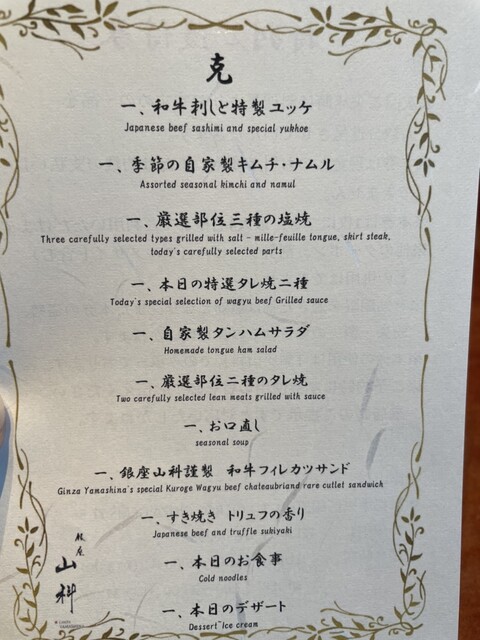 克
一、和牛刺しと特製ユッケ
Japanese beef sashimi and special yukhoe
一、季節の自家製キムチ・ナムル
Assorted seasonal kimchi and namul
一、厳選部位三種の塩焼
Three carefully selected types grilled with salt - mille-feuille tongue, skirt steak,
today's carefully selected parts
一、本日の特選タレ焼二種
Today's special selection of wagyu beef Grilled sauce
一、自家製タンハムサラダ
Homemade tongue ham salad
一、厳選部位二種のタレ焼
Two carefully selected lean meats grilled with sauce
一、お口直し
seasonal soup
一、銀座山科謹製 和牛フィレカツサンド
Ginza Yamashina's special Kuroge Wagyu beef chateaubriand rare cutlet sandwich
一、すき焼き トリュフの香り
Japanese beef and truffle sukiyaki
一、本日のお食事
Cold noodles
一、本日のデザート
Dessert~Ice cream
銀座
山科